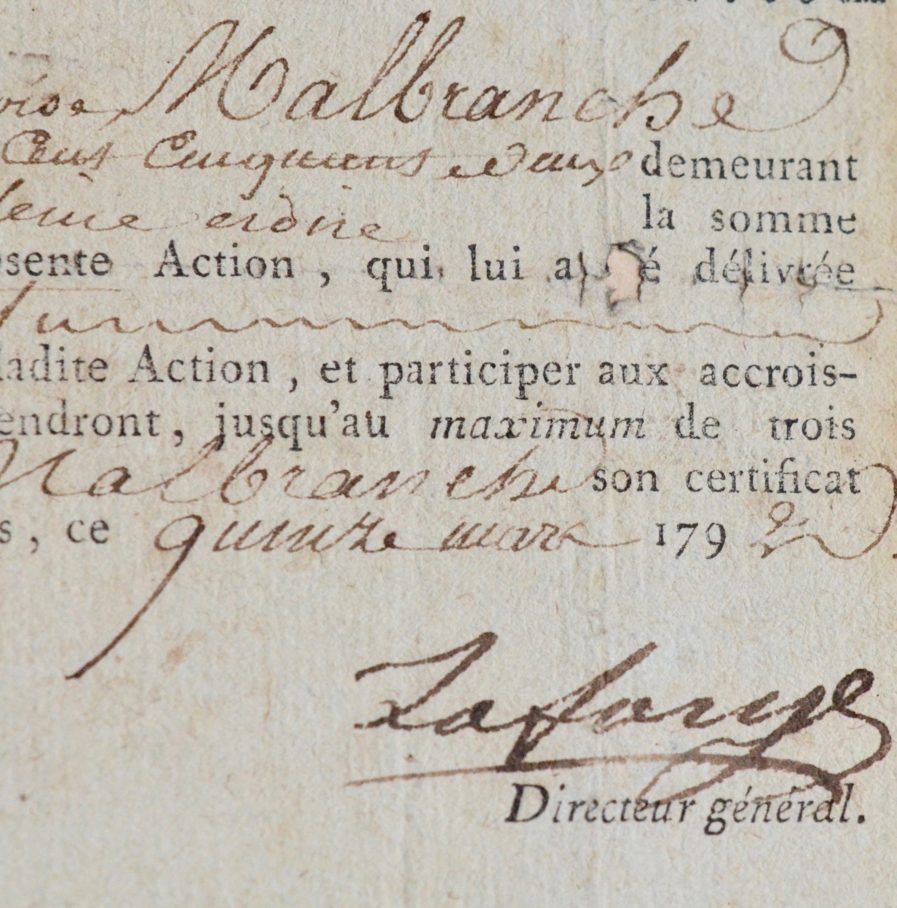 Malbranche
Cent Cinquante deux demeurant
ordre la somme
sente Action, qui lui a é délivrée
ladite Action, et participer aux accrois-
endront, jusqu'au maximum de trois
Malbranche son certificat
s, ce quinze mars 1792.
Lafarge
Directeur général.